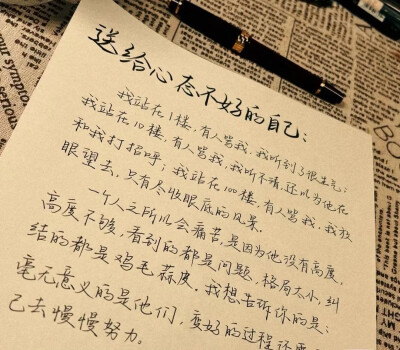 送给心态不好的自己：
我站在1楼，有人骂我，我听到了很生气；
我站在10楼，有人骂我，我听不清，还以为他在
和我打招呼；我站在100楼，有人骂我，我放
眼望去，只有尽收眼底的风景。
一个人之所以会痛苦，是因为他没有高度，
高度不够，看到的都是问题，格局太小，纠
结的都是鸡毛蒜皮。我想告诉你的是：
毫无意义的是他们，变好的过程还要
己去慢慢努力。